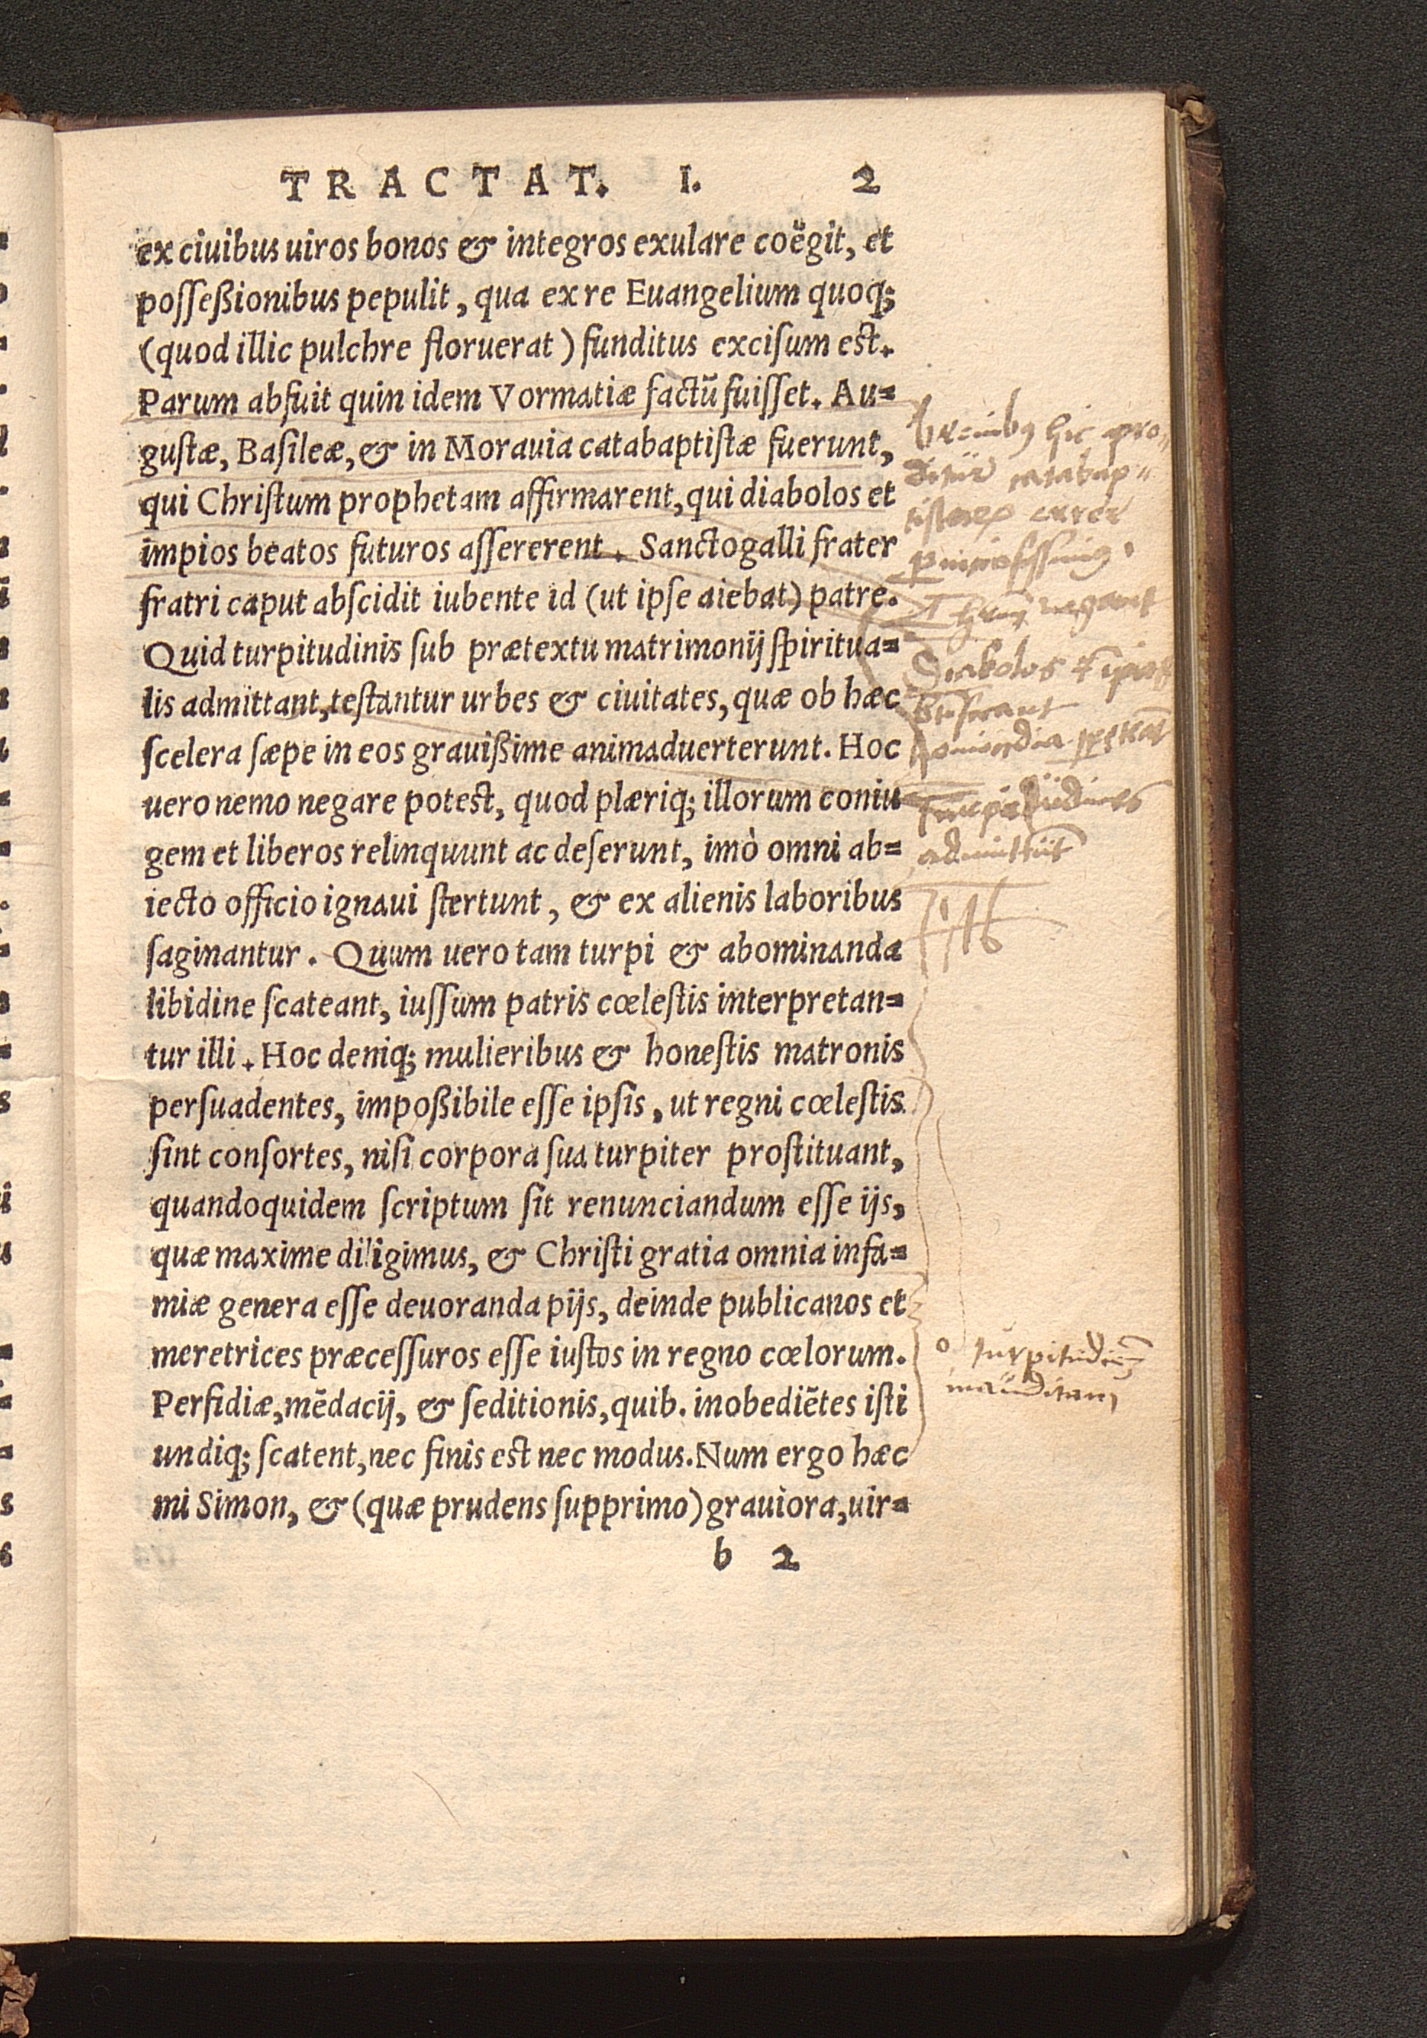 TRACTAT. I. 2
ex ciuibus uiros bonos & integros exulare coëgit, et
posseßionibus pepulit, qua ex re Euangelium quoq;
(quod illic pulchre floruerat) funditus excisum est.
Parum abfuit quin idem Vormatiæ factū fuisset. Au=
gustæ, Basileæ, & in Morauia catabaptistæ fuerunt,
qui Christum prophetam affirmarent, qui diabolos et
impios beatos futuros assererent. Sanctogalli frater
fratri caput abscidit iubente id (ut ipse aiebat) patre.
Quid turpitudinis sub prætextu matrimonij spiritua=
lis admittant, testantur urbes & ciuitates, quæ ob hæc
scelera sæpe in eos grauißime animaduerterunt. Hoc
uero nemo negare potest, quod plæriq; illorum coniu
gem et liberos relinquunt ac deserunt, imò omni ab=
iecto officio ignaui stertunt, & ex alienis laboribus
saginantur. Quum uero tam turpi & abominanda
libidine scateant, iussum patris cœlestis interpretan=
tur illi. Hoc deniq; mulieribus & honestis matronis
persuadentes, impoßibile esse ipsis, ut regni cœlestis
sint consortes, nisi corpora sua turpiter prostituant,
quandoquidem scriptum sit renunciandum esse ijs,
quæ maxime diligimus, & Christi gratia omnia infa=
miæ genera esse deuoranda pijs, deinde publicanos et
meretrices præcessuros esse iustos in regno cœlorum.
Perfidiæ, mēdacij, & seditionis, quib. inobediētes isti
undiq; scatent, nec finis est nec modus. Num ergo hæc
mi Simon, & (quæ prudens supprimo) grauiora, uir=
b 2
hic pro„
catabap„
error
negant
Diabolos
admittūt
inauditam